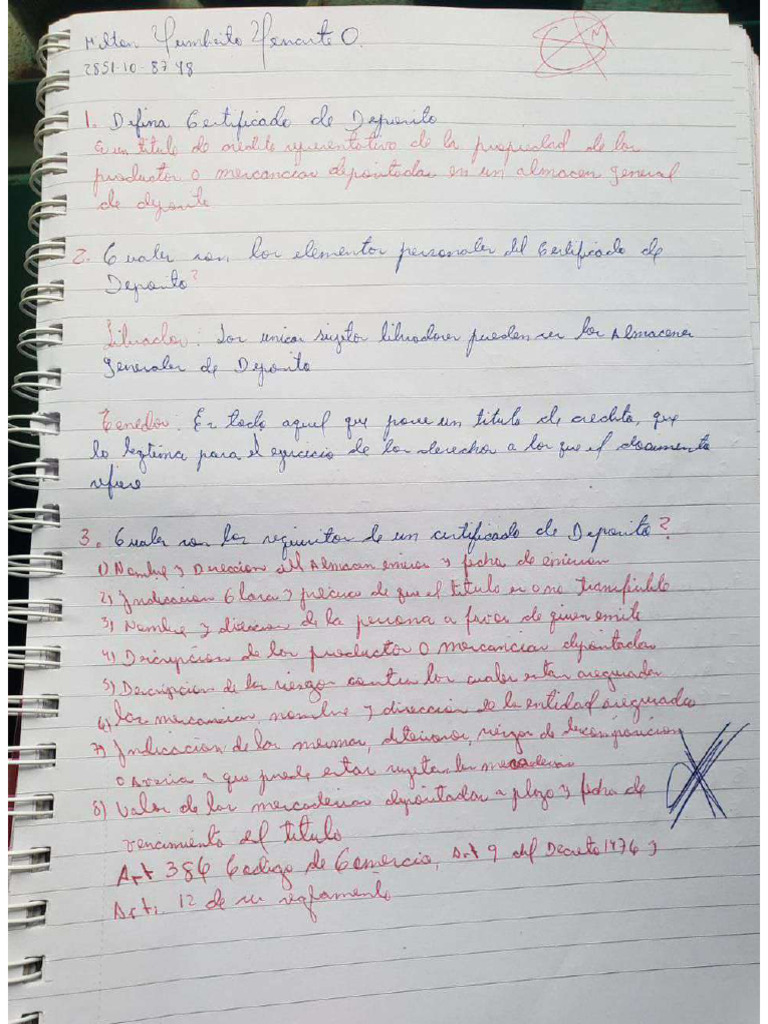 Milton Humberto O.
2851-10-8748
1. Defina Certificado de Deposito
Es un titulo de credito representativo de la propiedad de los
productos o mercancias depositadas en un almacen general
de deposito
2. Cuales son los elementos personales del Certificado de
Deposito?
Librador: Los unicos sujetos libradores pueden ser los Almacenes
Generales de Deposito
Tenedor: Es todo aquel que posee un titulo de credito, que
lo legitima para el ejercicio de los derechos a los que el documento
refiere
3. Cuales son los requisitos de un certificado de Deposito?
1) Nombre y Direccion del Almacen emisor y fecha de emision
2) Indicacion Clara y precisa de que el titulo es o no transferible
3) Nombre y direccion de la persona a favor de quien emite
4) Descripcion de los productos o mercancias depositadas
5) Descripcion de los riesgos contra los cuales estan aseguradas
6) las mercancias, nombre y direccion de la entidad aseguradora
7) Indicacion de las mermas, deterioros, riesgos de descomposicion
o Averia a que puede estar sujetas las mercaderias
8) Valor de las mercaderias depositadas plazo y fecha de
vencimiento del titulo
Art 386 Codigo de Comercio, Art 9 del Decreto 1476 y
Art. 12 de su reglamento